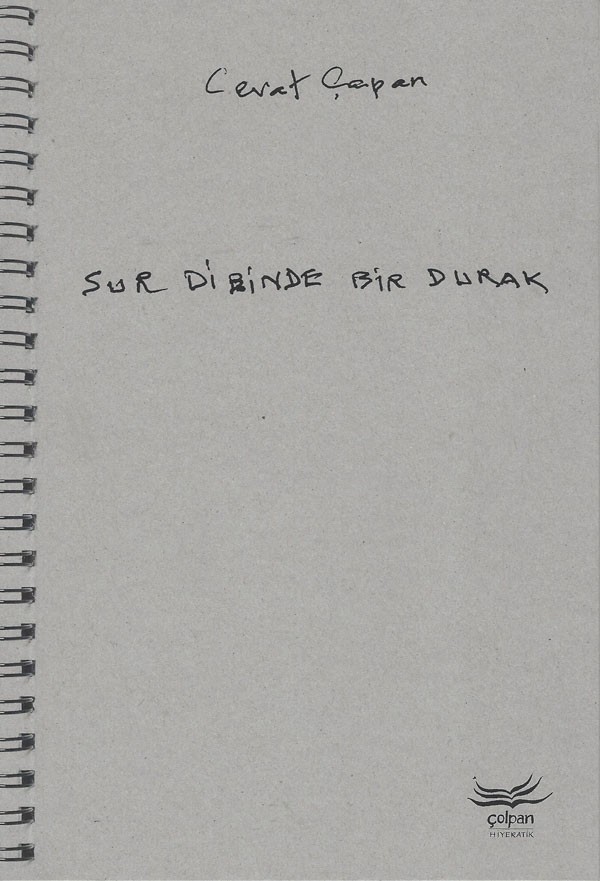 Cevat Çapan
SUR DİBİNDE BİR DURAK
çolpan
HİYERATİK